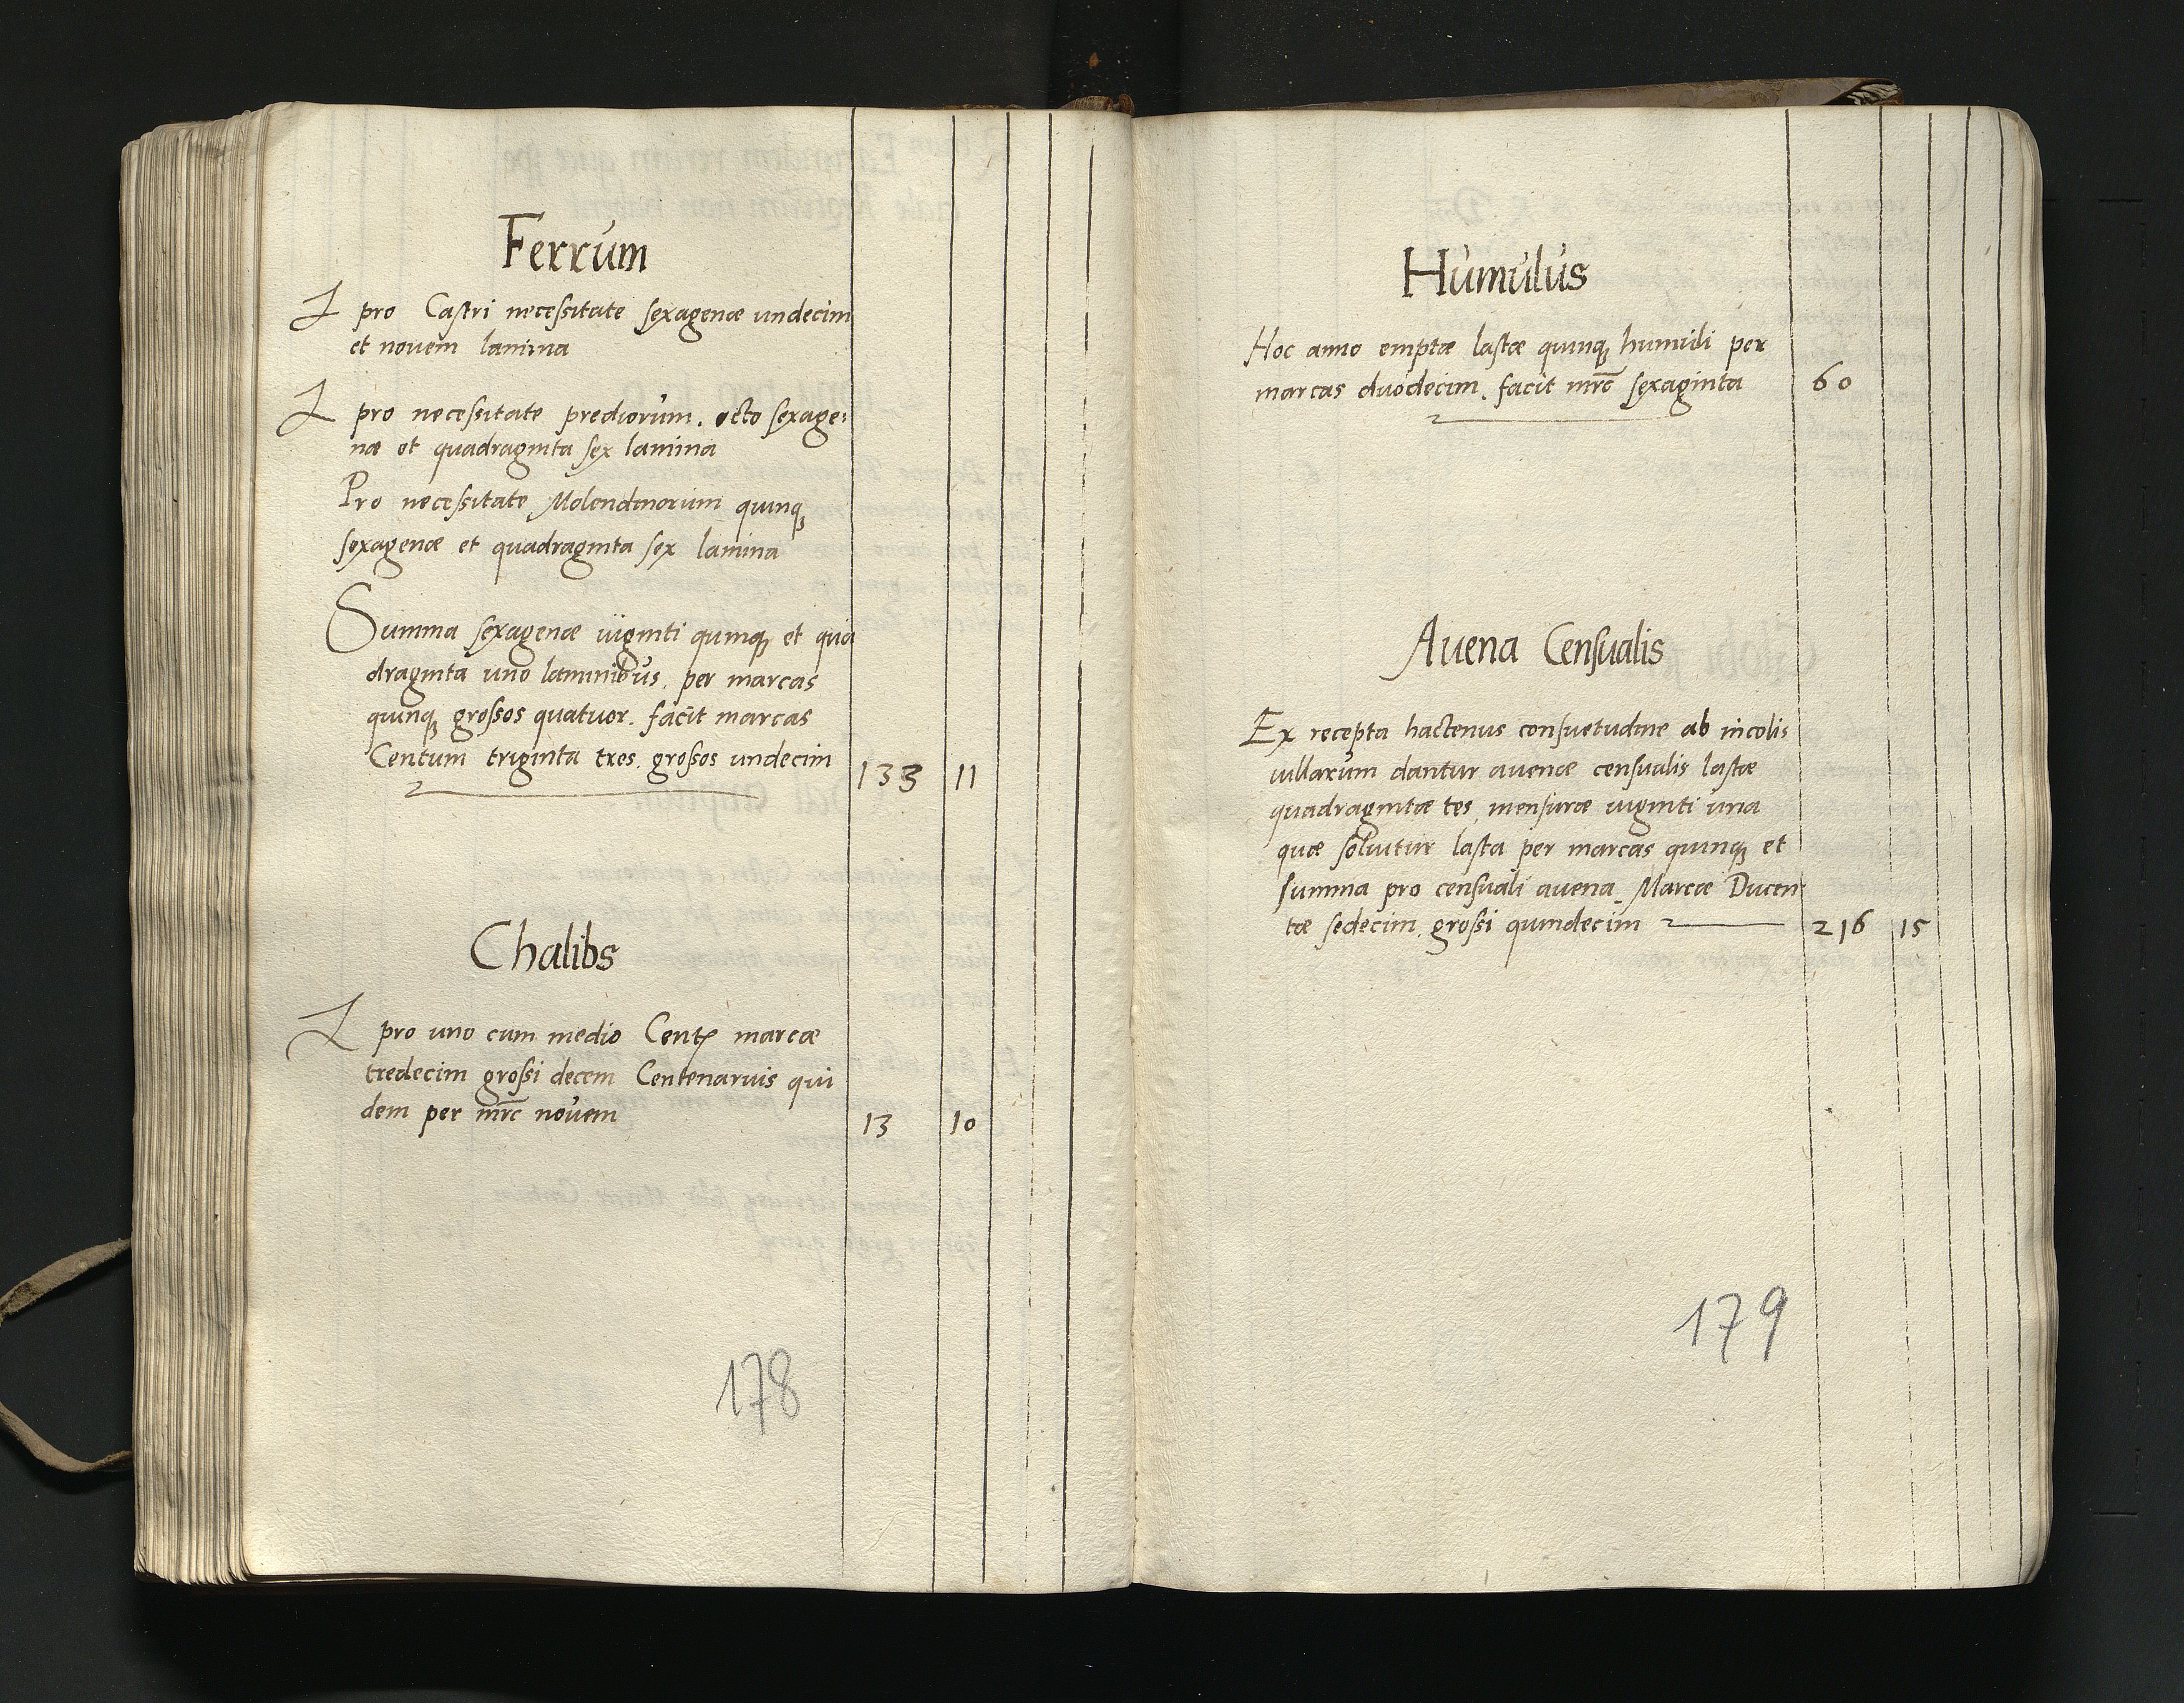 Ferrum
I pro Castri necessitate sexagenæ undecim
et novem lamina
I pro necessitate prediorum. octo sexage-
næ et quadraginta sex lamina
Pro necessitate Molendinorum quinq;
sexagenæ et quadraginta sex lamina
Summa sexagenæ viginti quinq; et qua
draginta uno laminibus. per marcas
quinq; grossos quatuor. facit marcas
Centum triginta tres. grossos undecim 133 11
Chalibs
I pro uno cum medio Cent marcæ
tredecim grossi decem Centenariis qui
dem per mrc novem 13 10
178
Humulus
Hoc anno emptæ lastæ quinq; humuli per
marcas duodecim. facit mrc sexaginta 60
Avena Censualis
Ex recepta hactenus consuetudine ab incolis
villarum dantur avenæ censualis lastæ
quadragintæ tes, mensuræ viginti una
quæ solvitur lasta per marcas quinq; et
summa pro censuali avena. Marcæ Ducen
tæ sedecim. grossi quindecim 216 15
179